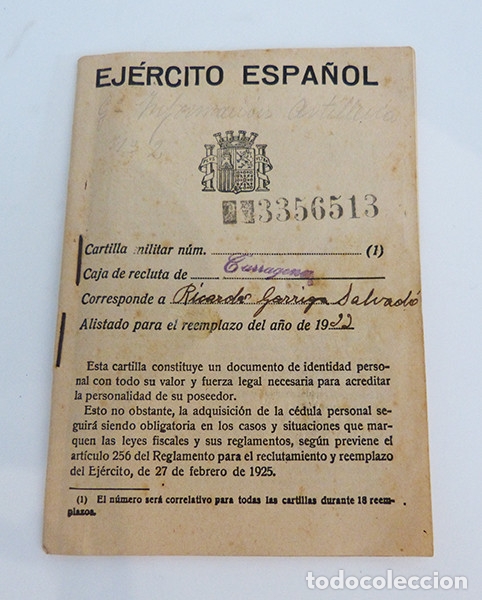 EJÉRCITO ESPAÑOL
Información Artillería
3356513
Cartilla militar núm. (1)
Caja de recluta de Tarragona
Corresponde a Ricardo Garriga Salvadó
Alistado para el reemplazo del año de 1932
Esta cartilla constituye un documento de identidad perso-
nal con todo su valor y fuerza legal necesaria para acreditar
la personalidad de su poseedor.
Esto no obstante, la adquisición de la cédula personal se-
guirá siendo obligatoria en los casos y situaciones que mar-
quen las leyes fiscales y sus reglamentos, según previene el
artículo 256 del Reglamento para el reclutamiento y reemplazo
del Ejército, de 27 de febrero de 1925.
(1) El número será correlativo para todas las cartillas durante 18 reem-
plazos.
todocoleccion